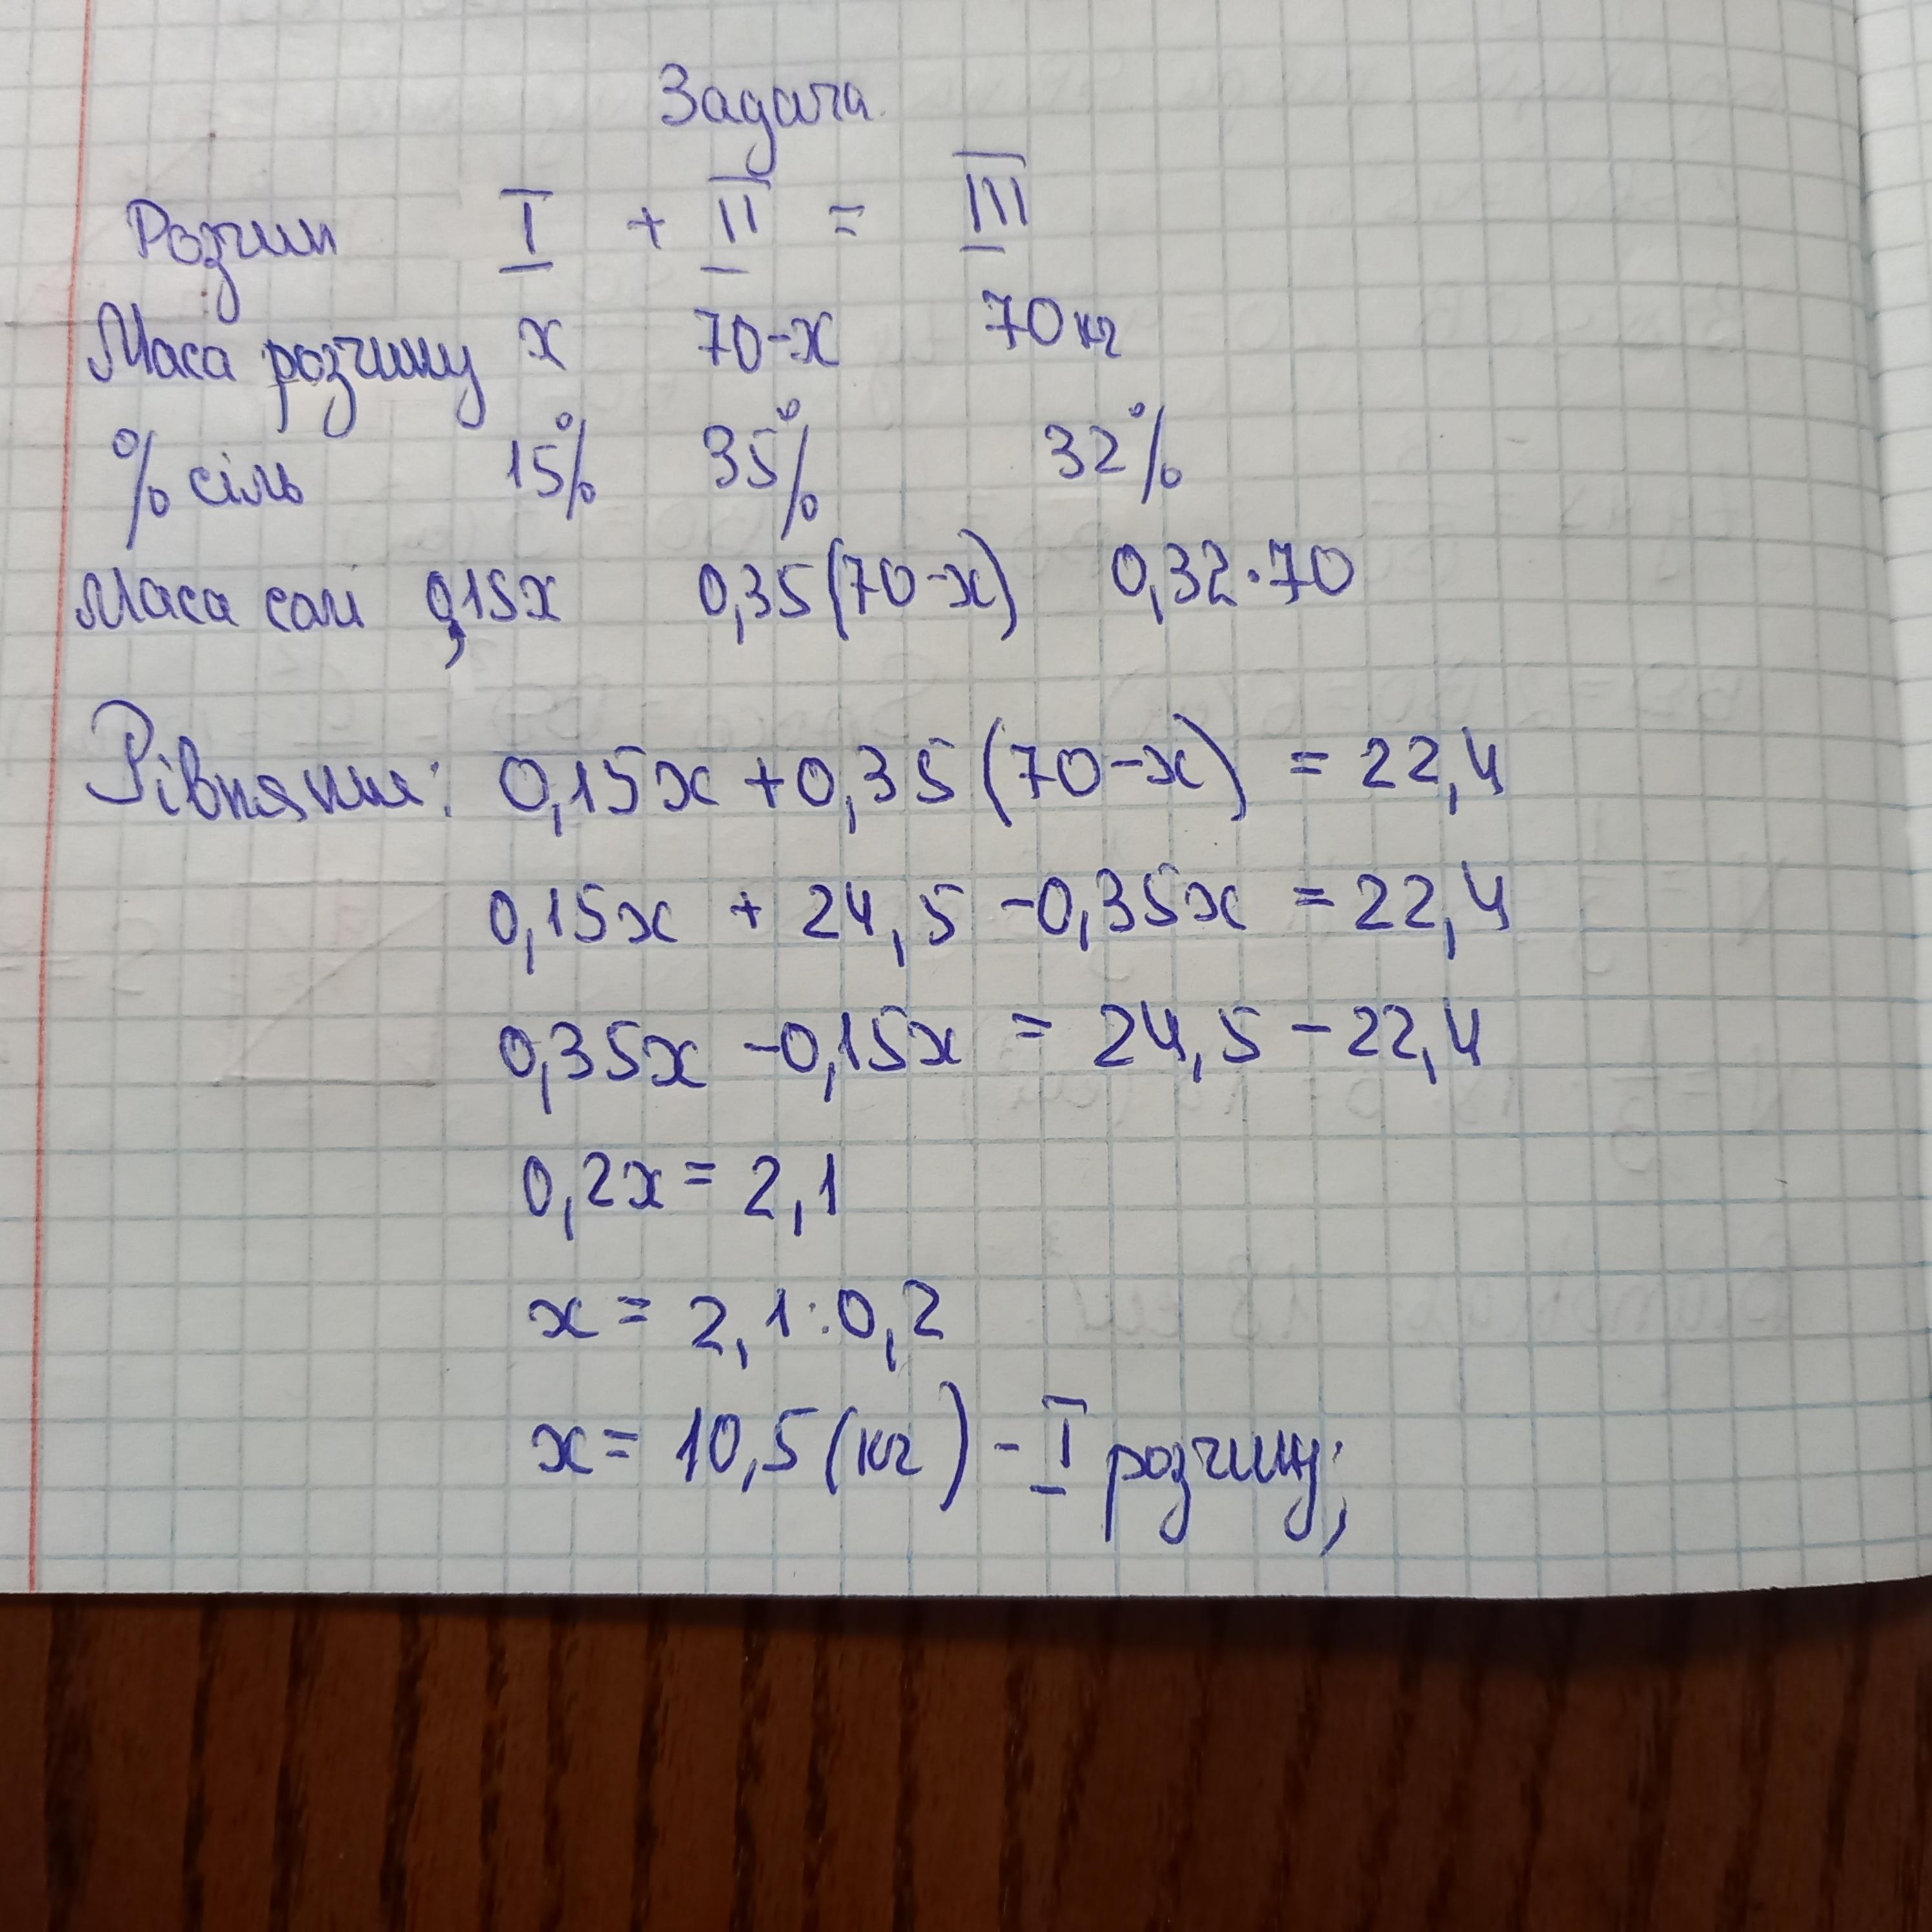 Задача
Розчин I + II = III
Маса розчину x 70-x 70кг
% сіль 15% 35% 32%
Маса солі 0,15x 0,35(70-x) 0,32·70
Рівняння: 0,15x + 0,35(70-x) = 22,4
0,15x + 24,5 - 0,35x = 22,4
0,35x - 0,15x = 24,5 - 22,4
0,2x = 2,1
x = 2,1:0,2
x = 10,5 (кг) - I розчину;